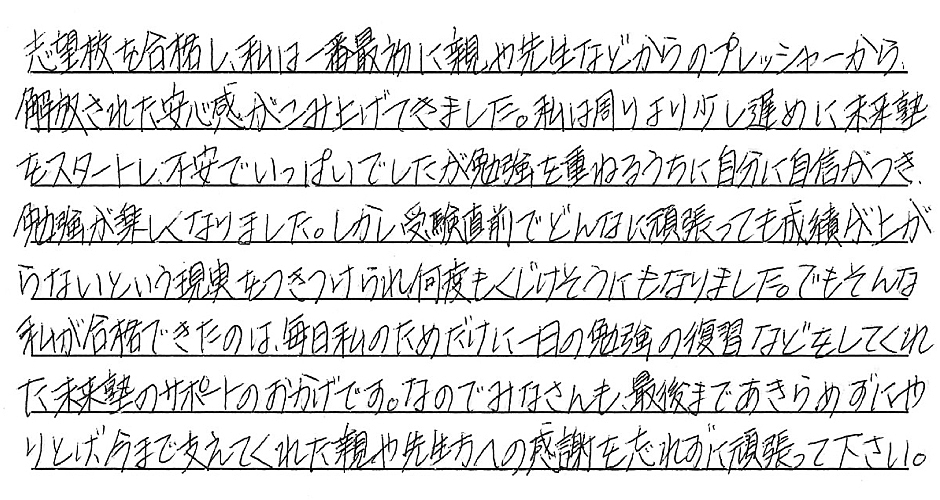 志望校を合格し、私は一番最初に親や先生などからのプレッシャーから、
解放された安心感がつみ上げてきました。私は周りより少し遅めに未来塾
をスタートし、不安でいっぱいでしたが勉強を重ねるうちに自分に自信がつき、
勉強が楽しくなりました。しかし受験直前でどんなに頑張っても成績が上が
らないという現実をつきつけられ何度もくじけそうにもなりました。でもそんな
私が合格できたのは、毎日私のためだけに一日の勉強の復習などをしてくれ
た未来塾のサポートのおかげです。なのでみなさんも、最後まであきらめずにや
りとげ今まで支えてくれた親や先生方への感謝を忘れずに頑張って下さい。